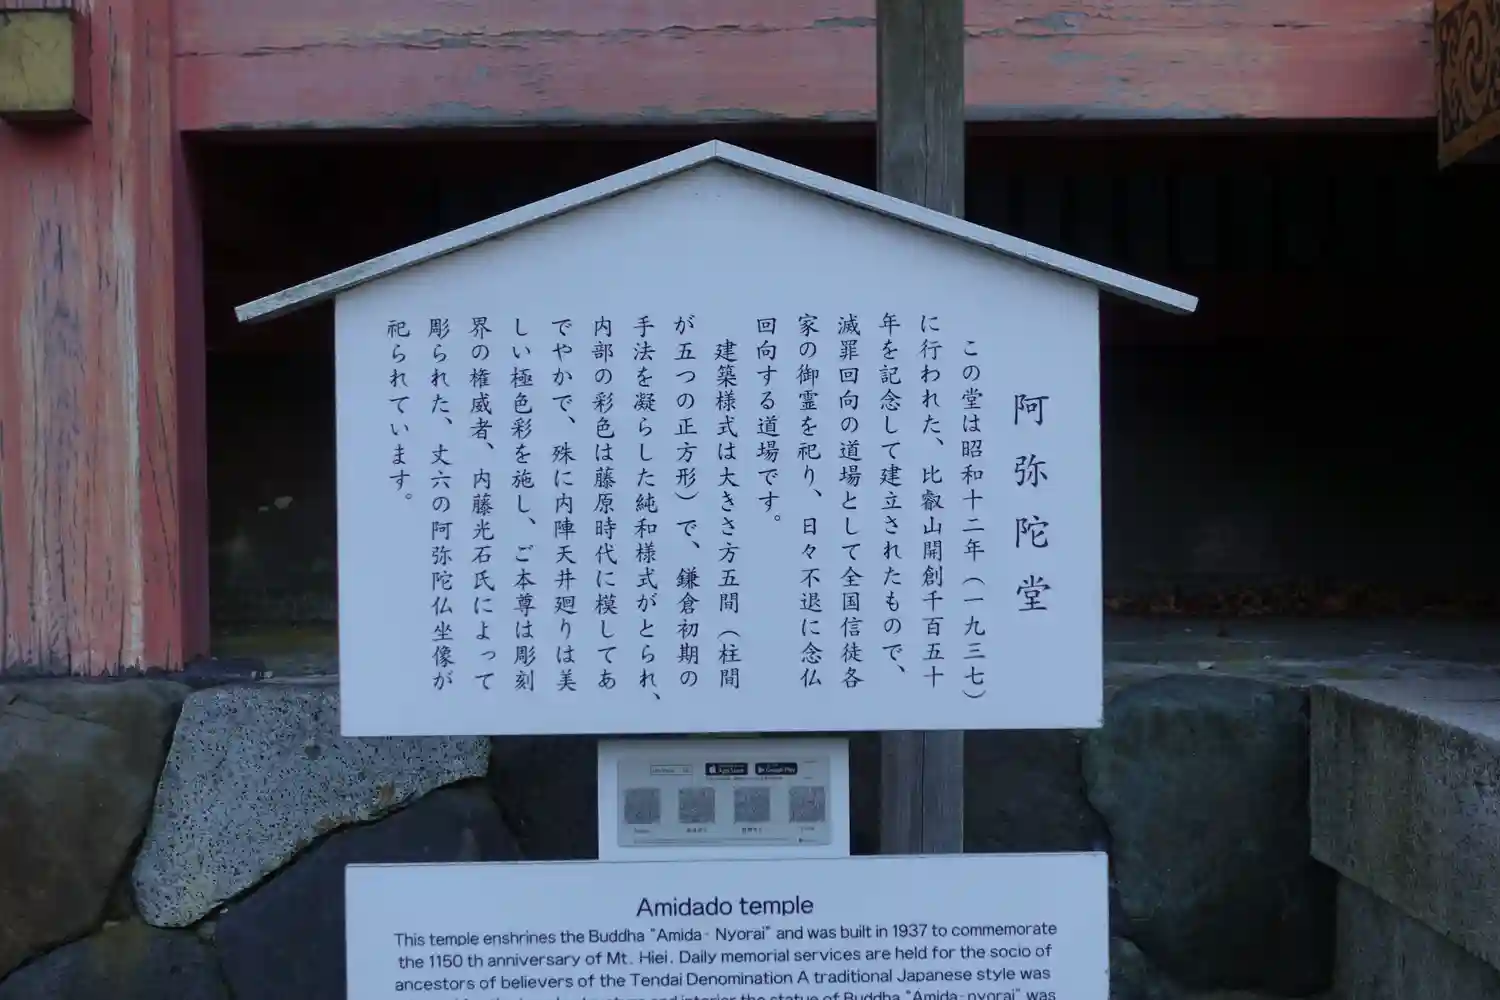 阿弥陀堂
この堂は昭和十二年（一九三七）
に行われた、比叡山開創千百五十
年を記念して建立されたもので、
滅罪回向の道場として全国信徒各
家の御霊を祀り、日々不退に念仏
回向する道場です。
建築様式は大きさ方五間（柱間
が五つの正方形）で、鎌倉初期の
手法を凝らした純和様式がとられ、
内部の彩色は藤原時代に模してあ
でやかで、殊に内陣天井廻りは美
しい極色彩を施し、ご本尊は彫刻
界の権威者、内藤光石氏によって
彫られた、丈六の阿弥陀仏坐像が
祀られています。
App Store
Google Play
Amidado temple
This temple enshrines the Buddha "Amida- Nyorai" and was built in 1937 to commemorate
the 1150 th anniversary of Mt. Hiei. Daily memorial services are held for the socio of
ancestors of believers of the Tendai Denomination A traditional Japanese style was
interior the statue of Buddha "Amida-nyorai" was